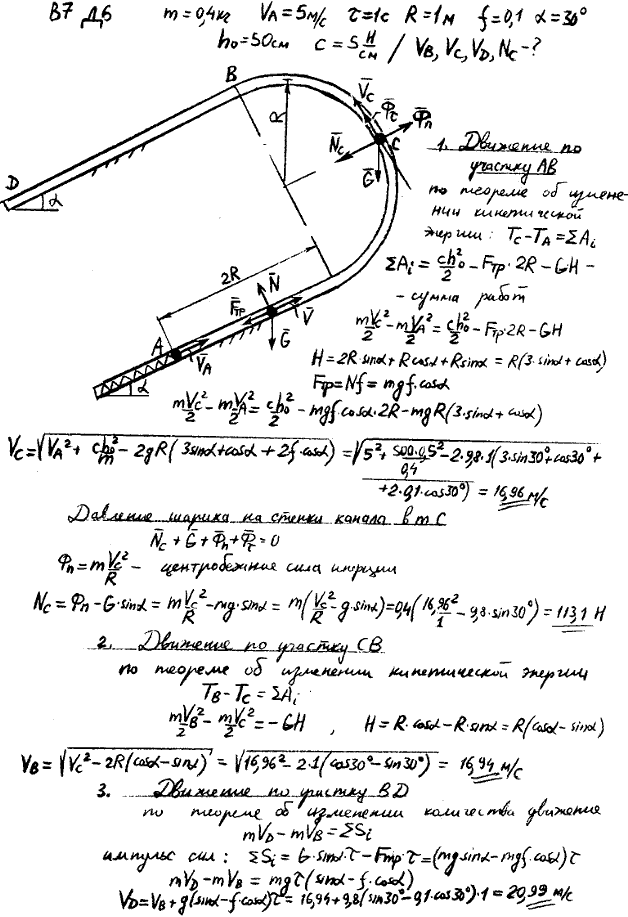 В7 Д6 m=0,4кг V_A=5м/с τ=1с R=1м f=0,1 α=30°
h₀=50см c=5 Н/см / V_B, V_C, V_D, N_C-?
B
V̄_C
Φ̄_τ
Φ̄_n
N̄_C
C
R
Ḡ
D
α
2R
N̄
F̄_тр
V̄
A
V̄_A
Ḡ
α
1. Движение по
участку AB
по теореме об измене-
нии кинетической
энергии: T_C-T_A=ΣA_i
ΣA_i = ch₀²/2 - F_тр·2R - GH -
- сумма работ
mV_C²/2 - mV_A²/2 = ch₀²/2 - F_тр·2R - GH
H = 2R sinα + R cosα + R sinα = R(3·sinα + cosα)
F_тр = Nf = mgf·cosα
mV_C²/2 - mV_A²/2 = ch₀²/2 - mgf·cosα·2R - mgR(3·sinα + cosα)
V_C = √(V_A² + ch₀²/m - 2gR(3sinα + cosα + 2f·cosα)) = √(5² + 500·0,5²/0,4 - 2·9,8·1(3·sin30° + cos30° +
+2·0,1·cos30°) = 16,96 м/с
Давление шарика на стенки канала в т C
N̄_C + Ḡ + Φ̄_n + Φ̄_τ = 0
Φ_n = m V_C²/R - центробежная сила инерции
N_C = Φ_n - G·sinα = m V_C²/R - mg·sinα = m(V_C²/R - g·sinα) = 0,4(16,96²/1 - 9,8·sin30°) = 113,1 Н
2. Движение по участку CB
по теореме об изменении кинетической энергии
T_B - T_C = ΣA_i
mV_B²/2 - mV_C²/2 = -GH , H = R·cosα - R·sinα = R(cosα - sinα)
V_B = √(V_C² - 2R(cosα - sinα)) = √(16,96² - 2·1(cos30° - sin30°)) = 16,94 м/с
3. Движение по участку BD
по теореме об изменении количества движения
mV_D - mV_B = ΣS_i
импульс сил: ΣS_i = G·sinα·τ - F_тр·τ = (mg sinα - mgf·cosα)τ
mV_D - mV_B = mgτ(sinα - f·cosα)
V_D = V_B + g(sinα - f·cosα)τ = 16,94 + 9,8(sin30° - 0,1·cos30°)·1 = 20,99 м/с